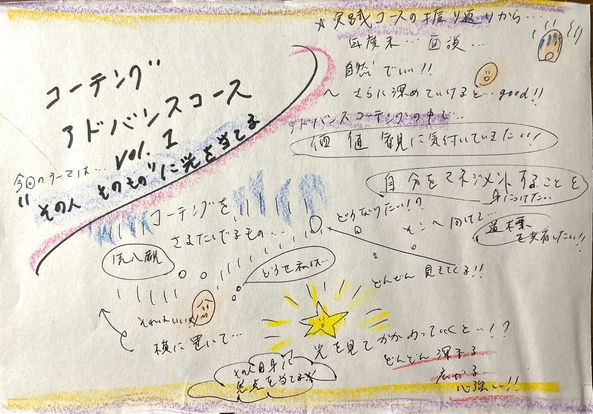 コーチング
アドバンスコース
vol. 1
今回のテーマは…
"その人 そのもの"に光を当てる
☆実践コースの振り返りから…
自然でいい!!
〜 さらに深めていけると…good!!
アドバンスコーチングの中で…
価値観に気付いていきたい!
自分をマネジメントすることを
身につけたい
コーチングを
さまたげるもの…
どうなりたい!?
そこへ向けて…
目標
を共有したい!!
先入観
どうせ私は…
どんどん見えてくる!!
それいいね
横に置いて…
光を見てかかわっていくと…!?
その人自身に
焦点を当てる
どんどん深まる
広がる
心強い!!